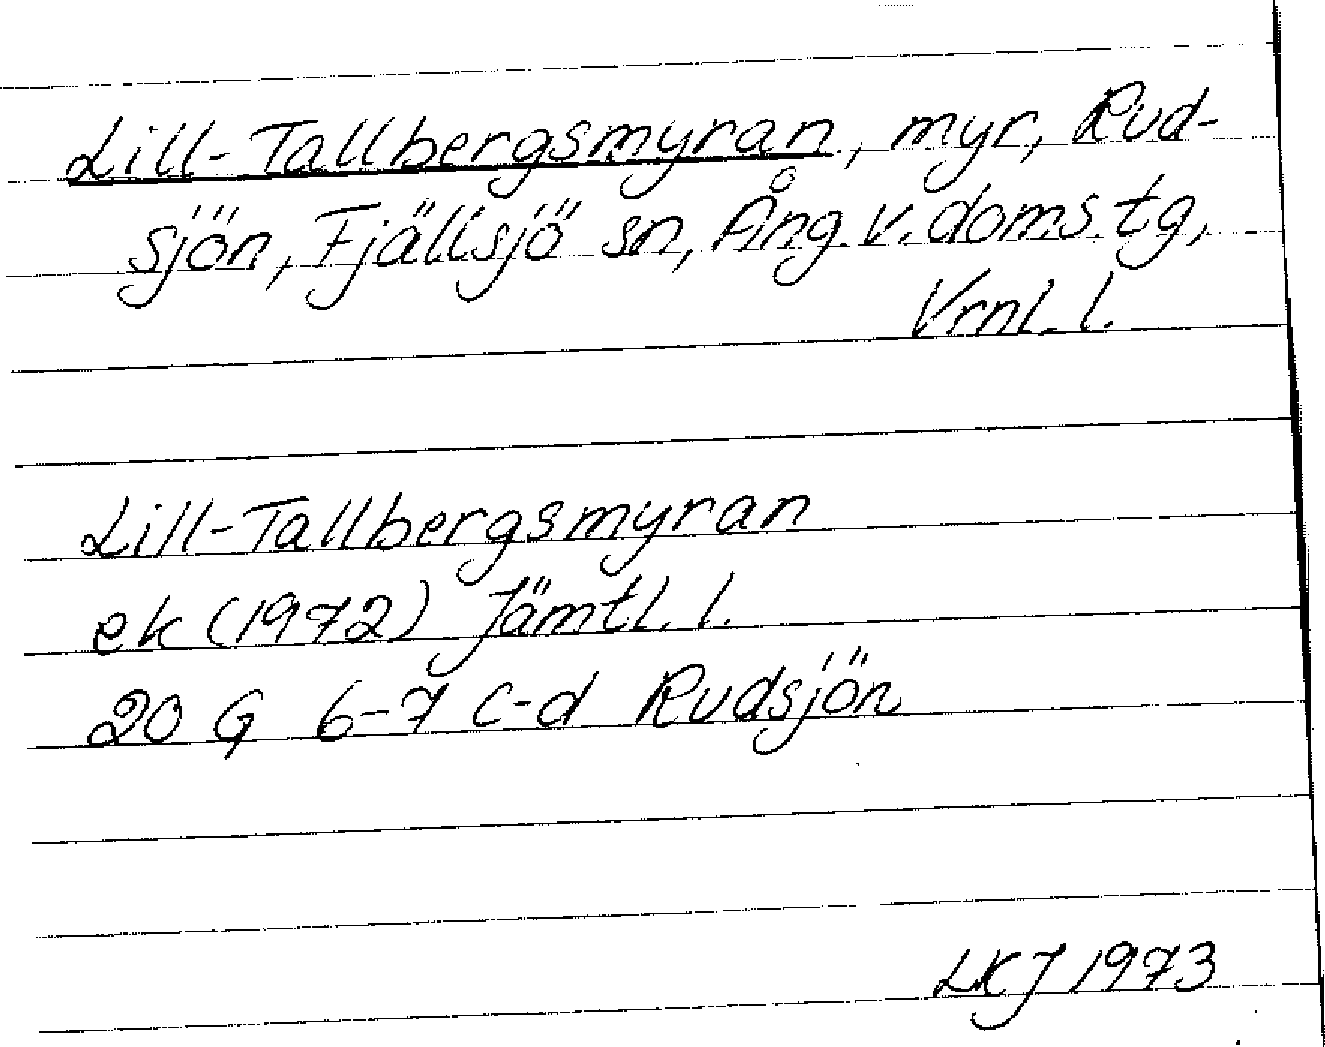 Lill-Tallbergsmyran, myr, Rud-
sjön, Fjällsjö sn, Ång. v. doms.tg,
Vrnl. l.
Lill-Tallbergsmyran
ek (1972) Jämtl. l.
20 G 6-7 c-d Rudsjön
LKJ 1973